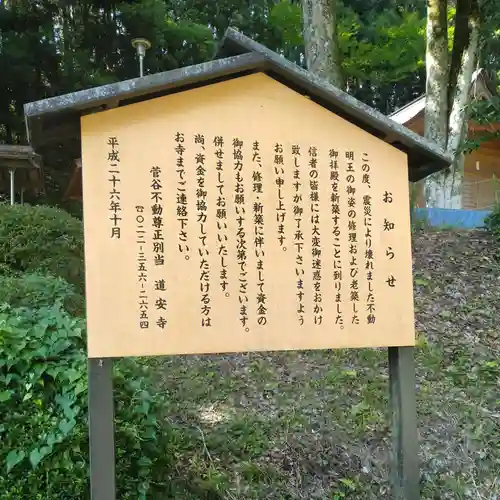 お知らせ
この度、震災により壊れました不動
明王の御姿の修理および老築した
御拝殿を新築することに到りました。
信者の皆様には大変御迷惑をおかけ
致しますが御了承下さいますよう
お願い申し上げます。
また、修理・新築に伴いまして資金の
御協力もお願いする次第でございます。
併せましてお願いいたします。
尚、資金を御協力していただける方は
お寺までご連絡下さい。
菅谷不動尊別当 道安寺
〔〇二二-三五六-二六五四
平成二十六年十月